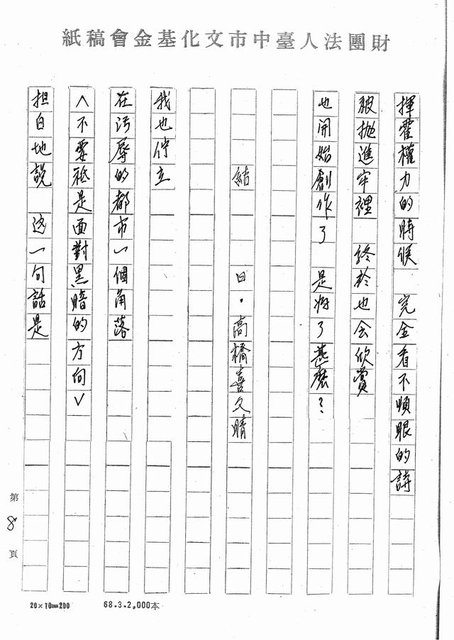 財團法人臺中市文化基金會稿紙
揮霍權力的時候　完全看不順眼的詩
被拋進牢裡　終於也会欣賞
也開始創作了　是為了甚麼？
結
日・高橋喜久晴
我也佇立
在污辱的都市一個角落
＜不要祇是面對黑暗的方向＞
担白地説　这一句話是
第 8 頁
20×10=200
68.3.2,000本